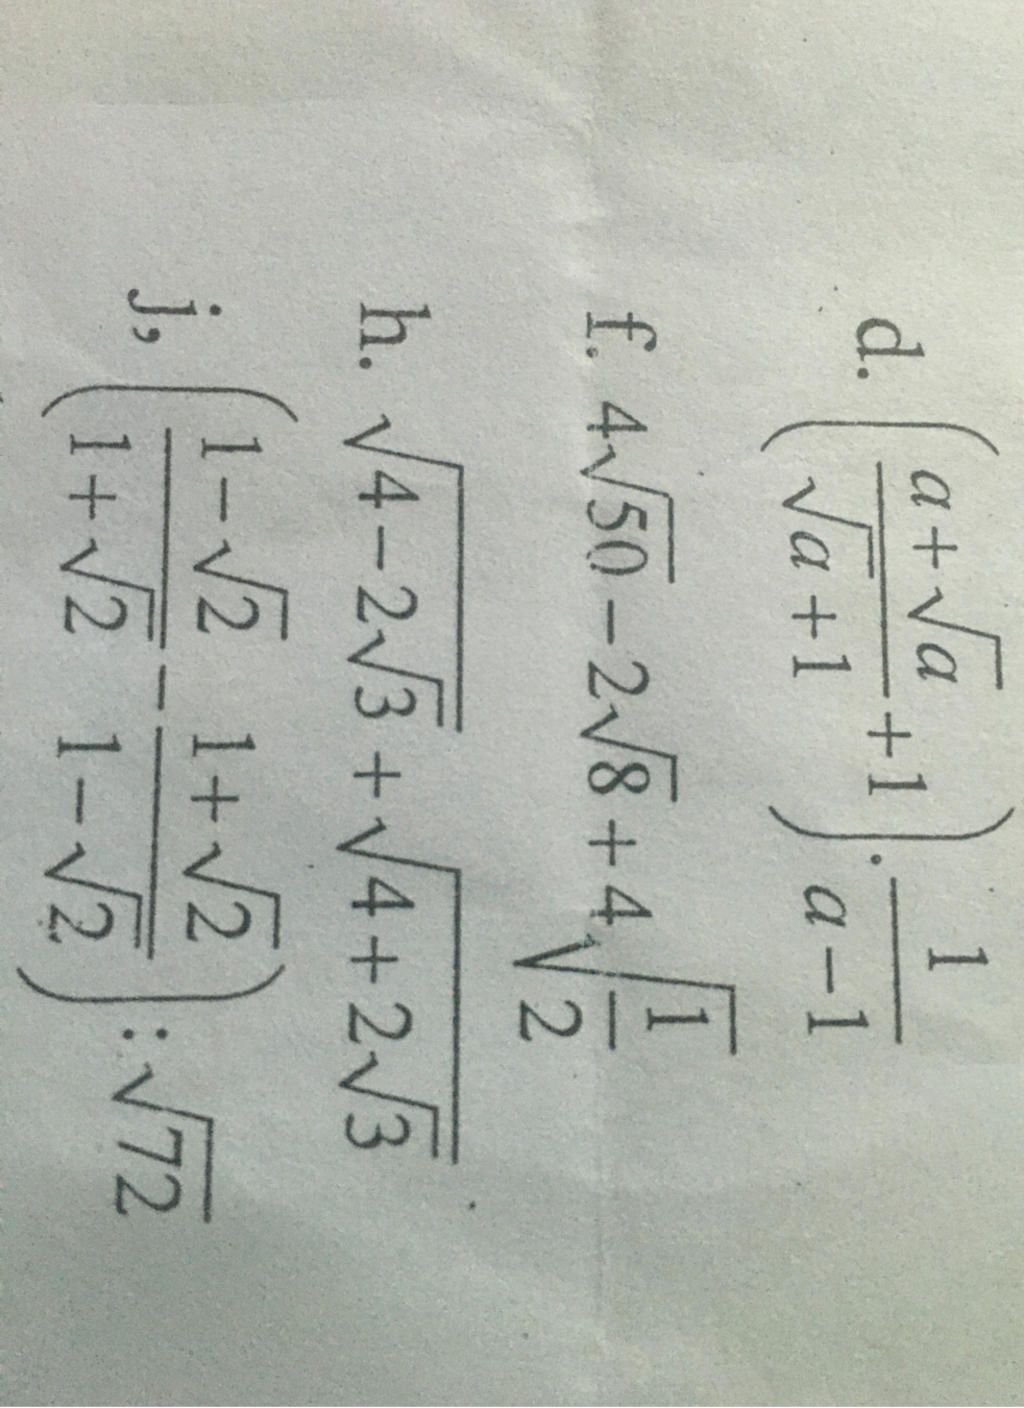 d. \left( \frac{a+\sqrt{a}}{\sqrt{a}+1} + 1 \right) . \frac{1}{a-1}
f. 4\sqrt{50} - 2\sqrt{8} + 4\sqrt{\frac{1}{2}}
h. \sqrt{4-2\sqrt{3}} + \sqrt{4+2\sqrt{3}}
j, \left( \frac{1-\sqrt{2}}{1+\sqrt{2}} - \frac{1+\sqrt{2}}{1-\sqrt{2}} \right) : \sqrt{72}